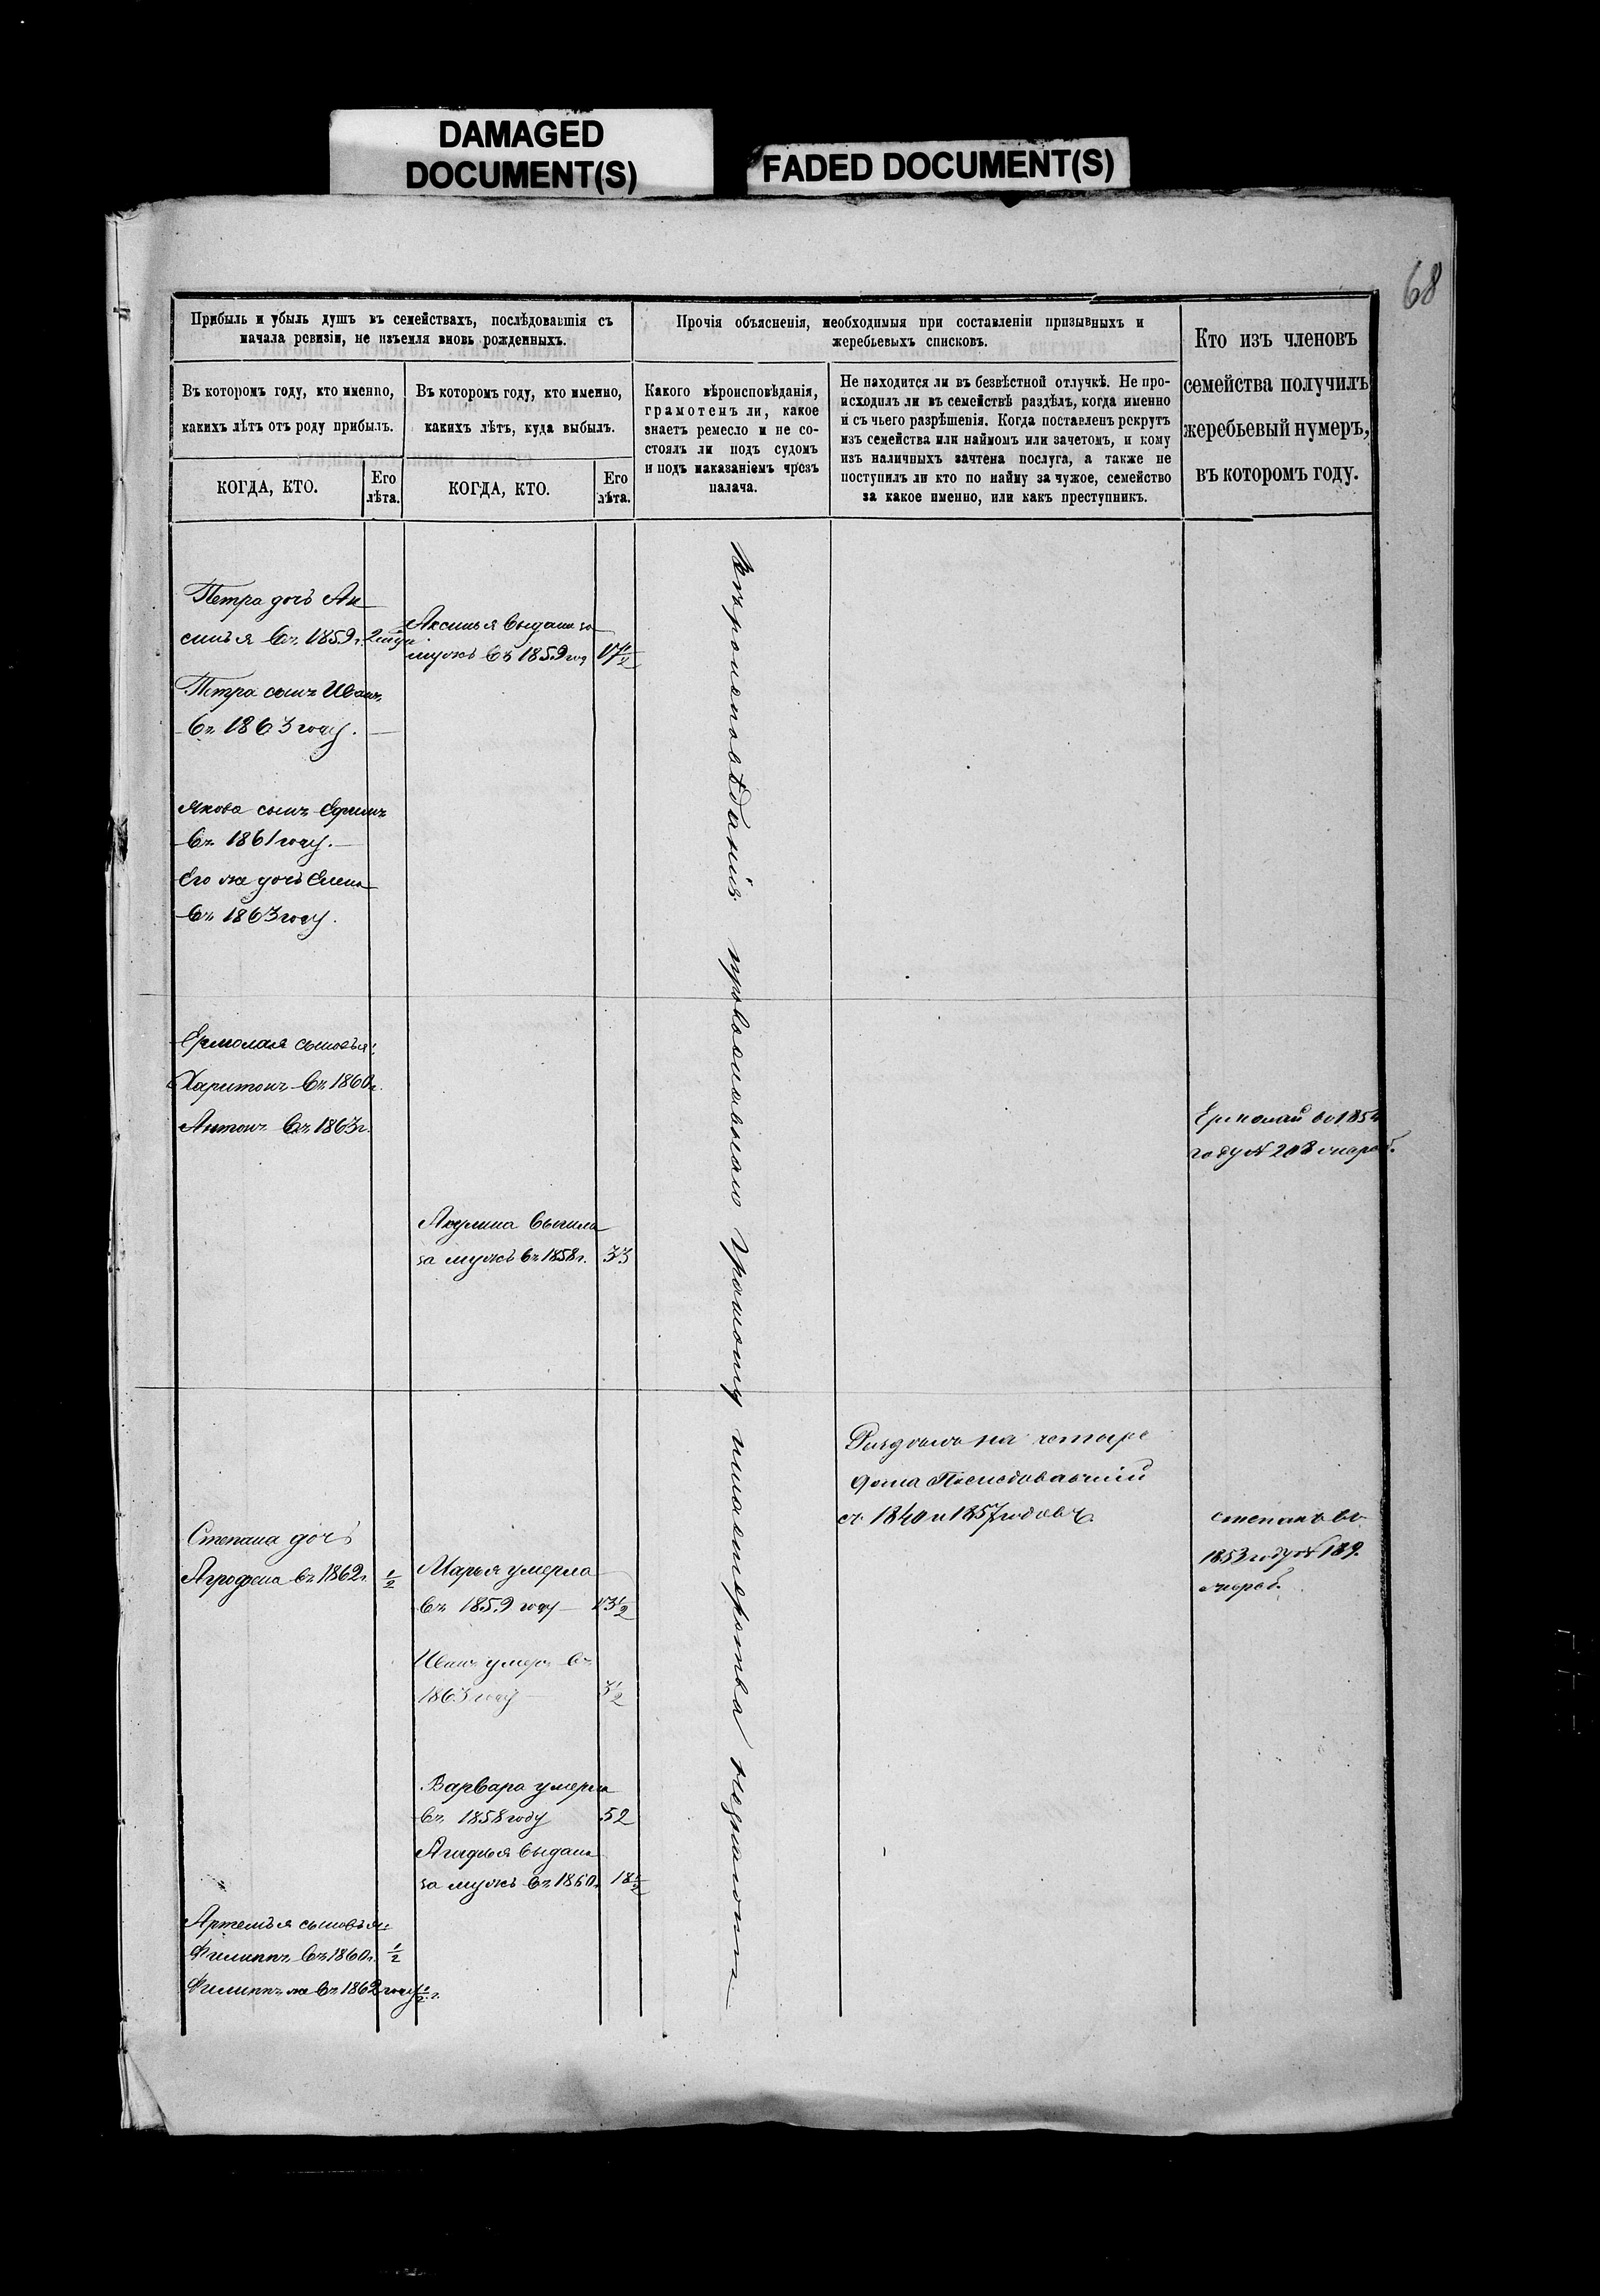 DAMAGED
DOCUMENT(S)
FADED DOCUMENT(S)
68
Прибыль и убыль душъ въ семействахъ, послѣдовавшія съ
начала ревизіи, не изъемля вновь рожденныхъ.
Въ которомъ году, кто именно,
какихъ лѣтъ отъ роду прибылъ.
КОГДА, КТО.
Его
лѣта.
Въ которомъ году, кто именно,
какихъ лѣтъ, куда выбылъ.
КОГДА, КТО.
Его
лѣта.
Прочія объясненія, необходимыя при составленіи призывныхъ и
жеребьевыхъ списковъ.
Какого вѣроисповѣданія,
грамотенъ ли, какое
знаетъ ремесло и не со-
стоялъ ли подъ судомъ
и подъ наказаніемъ чрезъ
палача.
Не находится ли въ безвѣстной отлучкѣ. Не про-
исходилъ ли въ семействѣ раздѣлъ, когда именно
и съ чьего разрѣшенія. Когда поставленъ рекрутъ
изъ семейства или наймомъ или зачетомъ, и кому
изъ наличныхъ зачтена послуга, а также не
поступилъ ли кто по найму за чужое, семейство
за какое именно, или какъ преступникъ.
Кто изъ членовъ
семейства получилъ
жеребьевый нумеръ,
въ которомъ году.
Петра дочь Ак-
синья въ 1859 г.
Петра сынъ Иванъ
въ 1863 году.
Якова сынъ Ефимъ
въ 1861 году.
Его же дочь Елена
въ 1863 году.
Ермолая сыновья:
Харитонъ въ 1860 г.
Антонъ въ 1863 г.
Степана дочь
Агрофена въ 1862 г. 1/2
Артемья сыновья:
Филиппъ въ 1860 г. 1/2
Филиппъ же въ 1862 году 1/2 г.
Аксинья выдана за-
мужъ въ 1859 год 17 1/2
Акулина вышла
за мужъ въ 1858 г. 33
Марья умерла
въ 1859 году 13 1/2
Иванъ умеръ въ
1863 году 3 1/2
Варвара умерла
въ 1858 году 52
Агафья выдана
за мужъ въ 1860 г. 18 1/2
Вѣроисповѣданія православнаго грамоту и мастерства незнаютъ
Раздѣлъ на четыре
дома Последовавшій
съ 1840 и 1857 годовъ
Ермолай въ 185
году № 208 жереб.
Степанъ въ
1853 году № 189.
жереб.